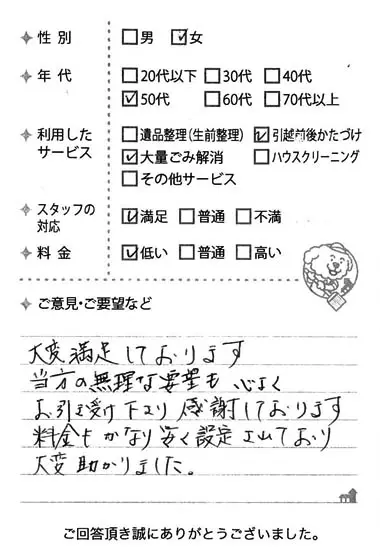 性別 □男 ☑女
年代 □20代以下 □30代 □40代
☑50代 □60代 □70代以上
利用したサービス □遺品整理(生前整理) ☑引越前後かたづけ
☑大量ごみ解消 □ハウスクリーニング
□その他サービス
スタッフの対応 ☑満足 □普通 □不満
料金 ☑低い □普通 □高い
ご意見・ご要望など
大変満足しております
当方の無理な要望も 心よく
お引き受け下さり 感謝しております
料金もかなり安く設定されており
大変助かりました。
ご回答頂き誠にありがとうございました。